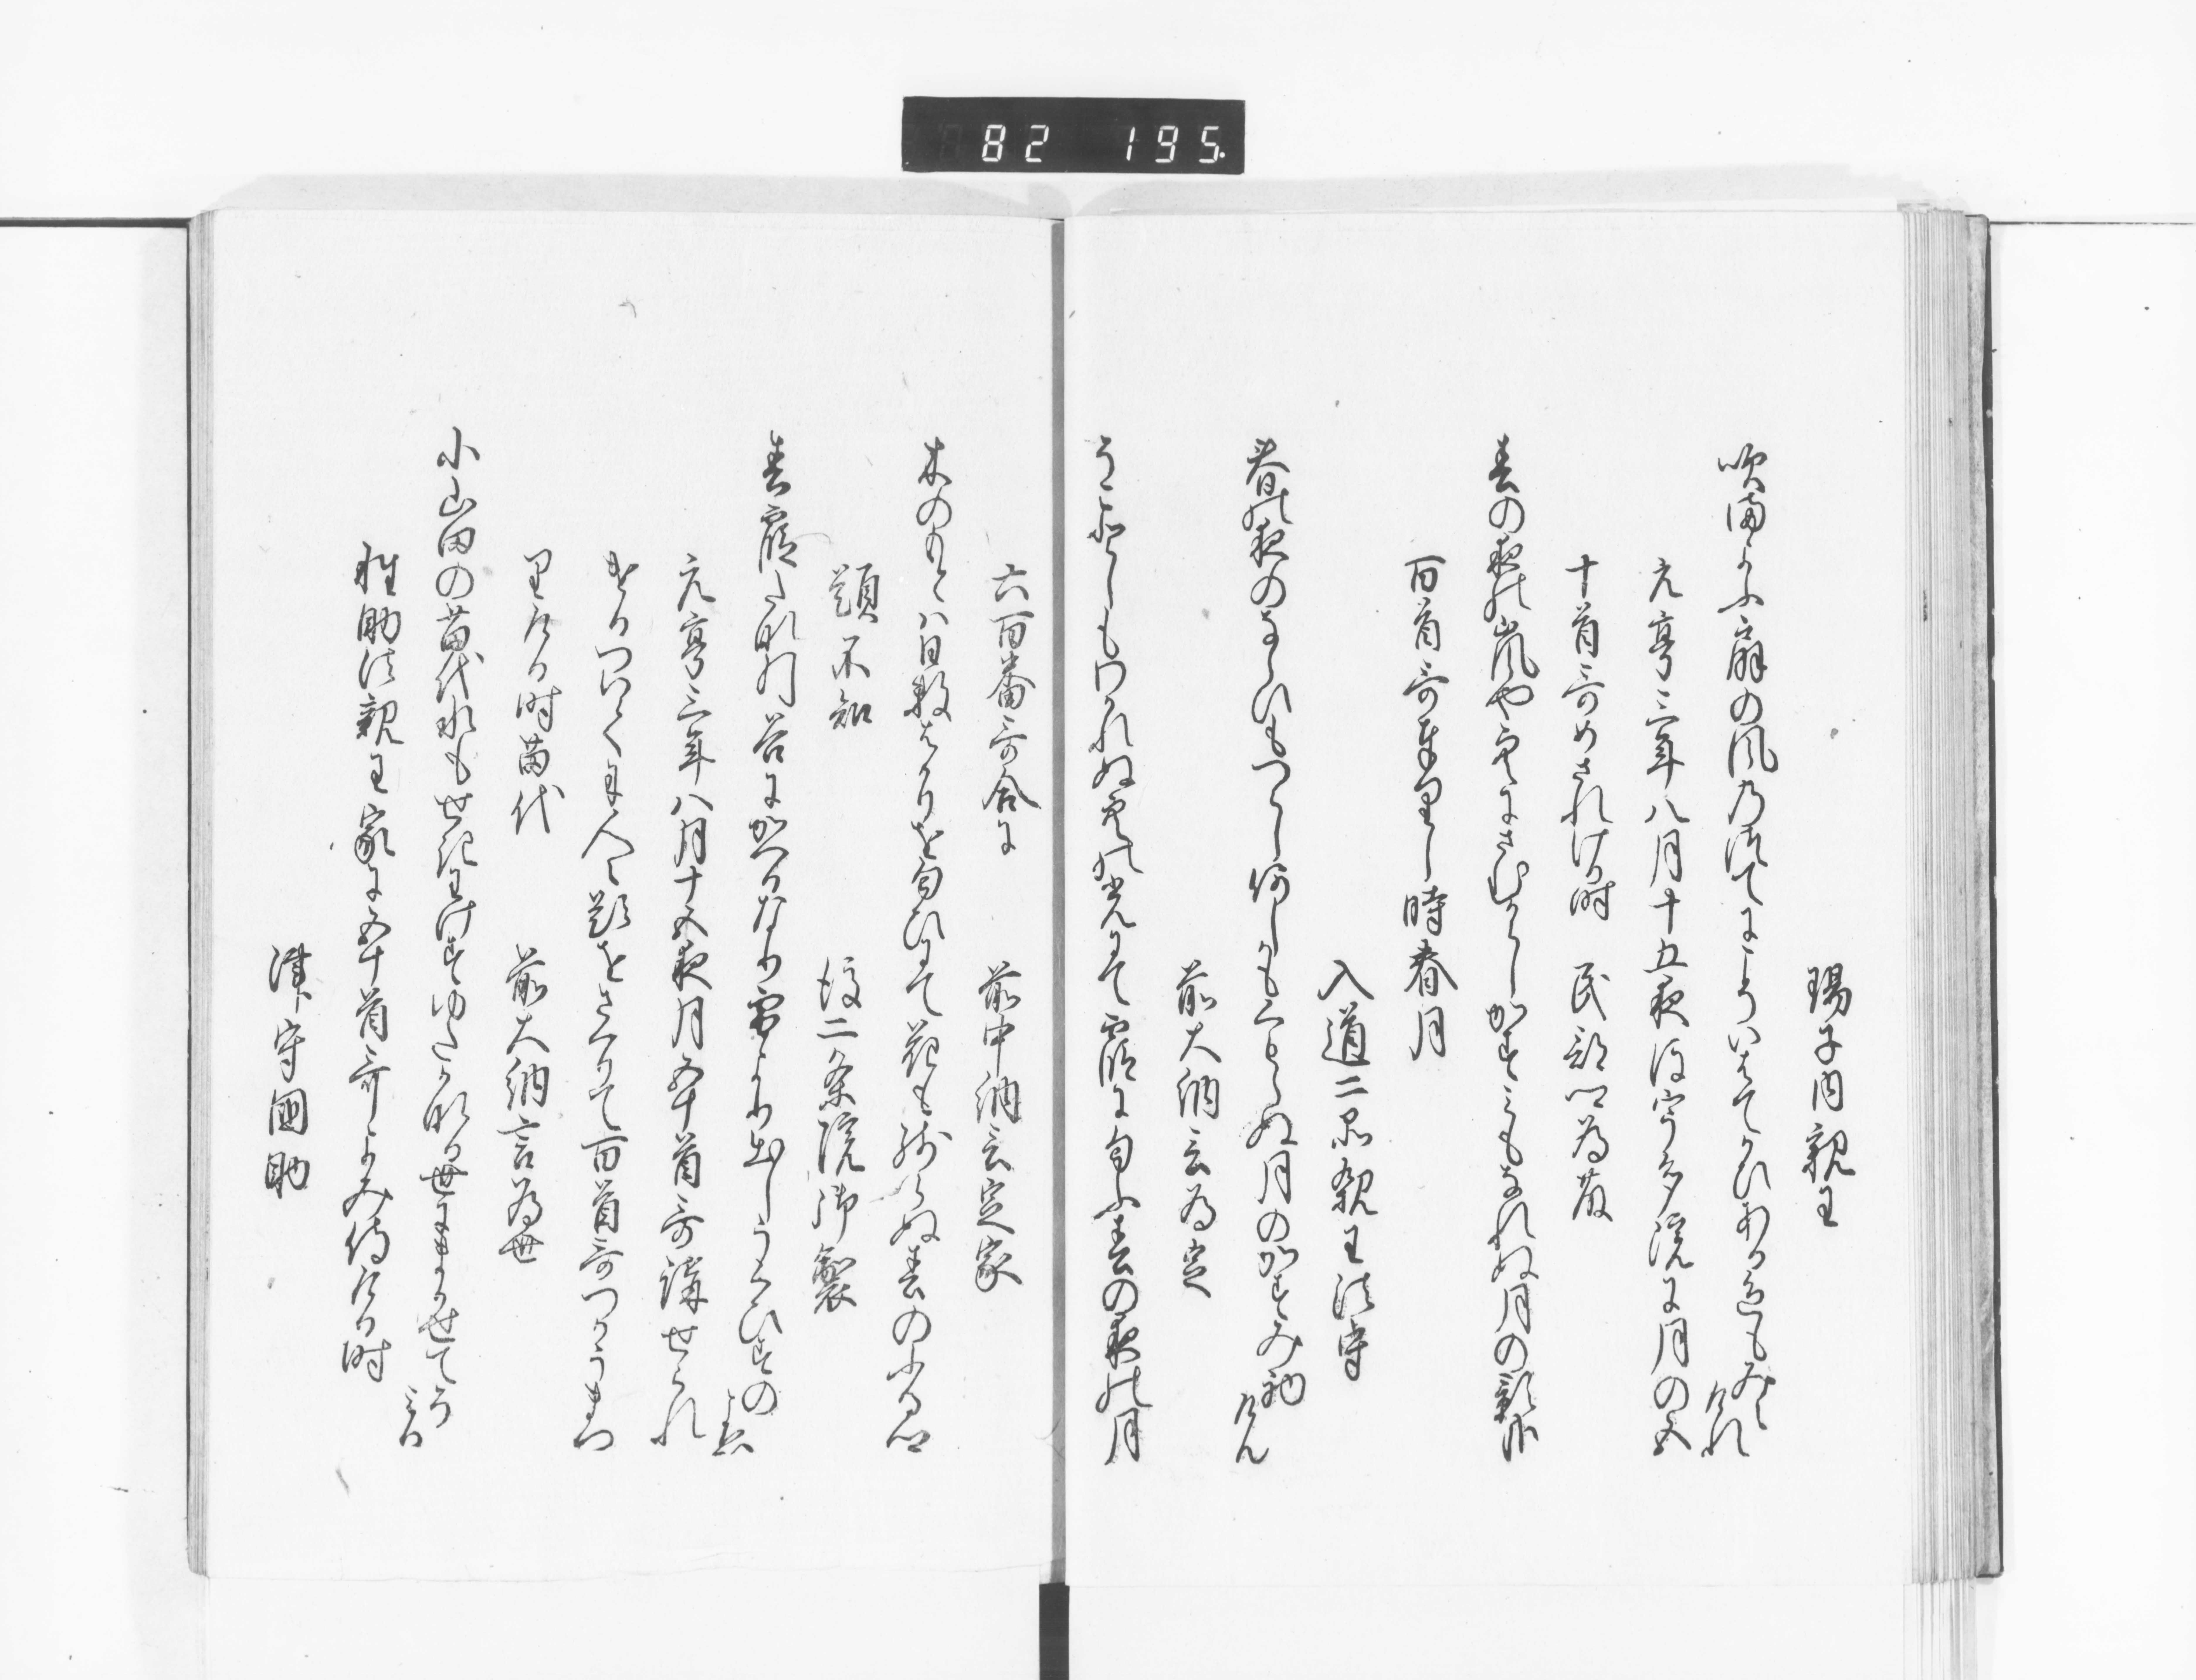 82 195.
瑒子内親王
吹まよふ扇の風のつてにこそいはてかひある色もみえけれ
元亨三年八月十五夜後宇多院に月の五
十首哥めされける時　民部卿為藤
春の夜の嵐や空にさむからしかすみもなれぬ月の影哉
百首哥奉りし時春月
入道二品親王法守
春の夜のならひもつらし何しかもくもらぬ月のかすみ初けん
前大納言為定
そことしもわかれぬ空の光にて霞に匂ふ春の夜の月
六百番哥合に
前中納言定家
木のもとは日数はかりを匂ひにて花も残らぬ春のふる郷
題不知
後二条院御製
春霞たな引谷にかへるなり雪より出しうくひすのこゑ
元亨三年八月十五夜月五十首哥講せられ
けるつゐてに人々題をさくりて百首哥つかうまつ
りける時苗代
前大納言為世
小山田の苗代水もせきわけすゆたかなる世にまかせてそみる
性助法親王家に五十首哥よみ侍ける時
津守国助